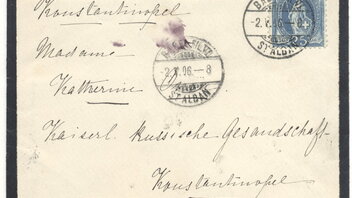 Konstantinopel
Madame
Katherine
Kaiserl. Russische Gesandschaft-
Konstantinopel
-2.V.96.-8
ST ALBAN.
-2.V.96.-8
ST ALBAN
25